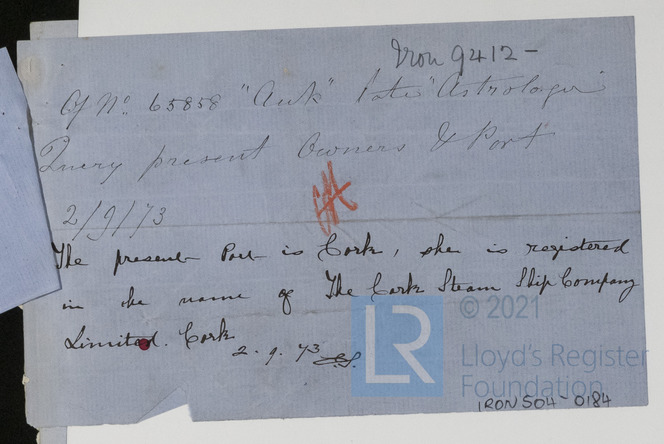 Iron 9412 -
Of No. 65858 "Auk" late "Astrologer"
Query present Owners & Port
2/9/73
The present Port is Cork, she is registered
in the name of The Cork Steam Ship Company
Limited. Cork
2. 9. 73
LR
© 2021
Lloyd's Register
Foundation
IRON504-0184